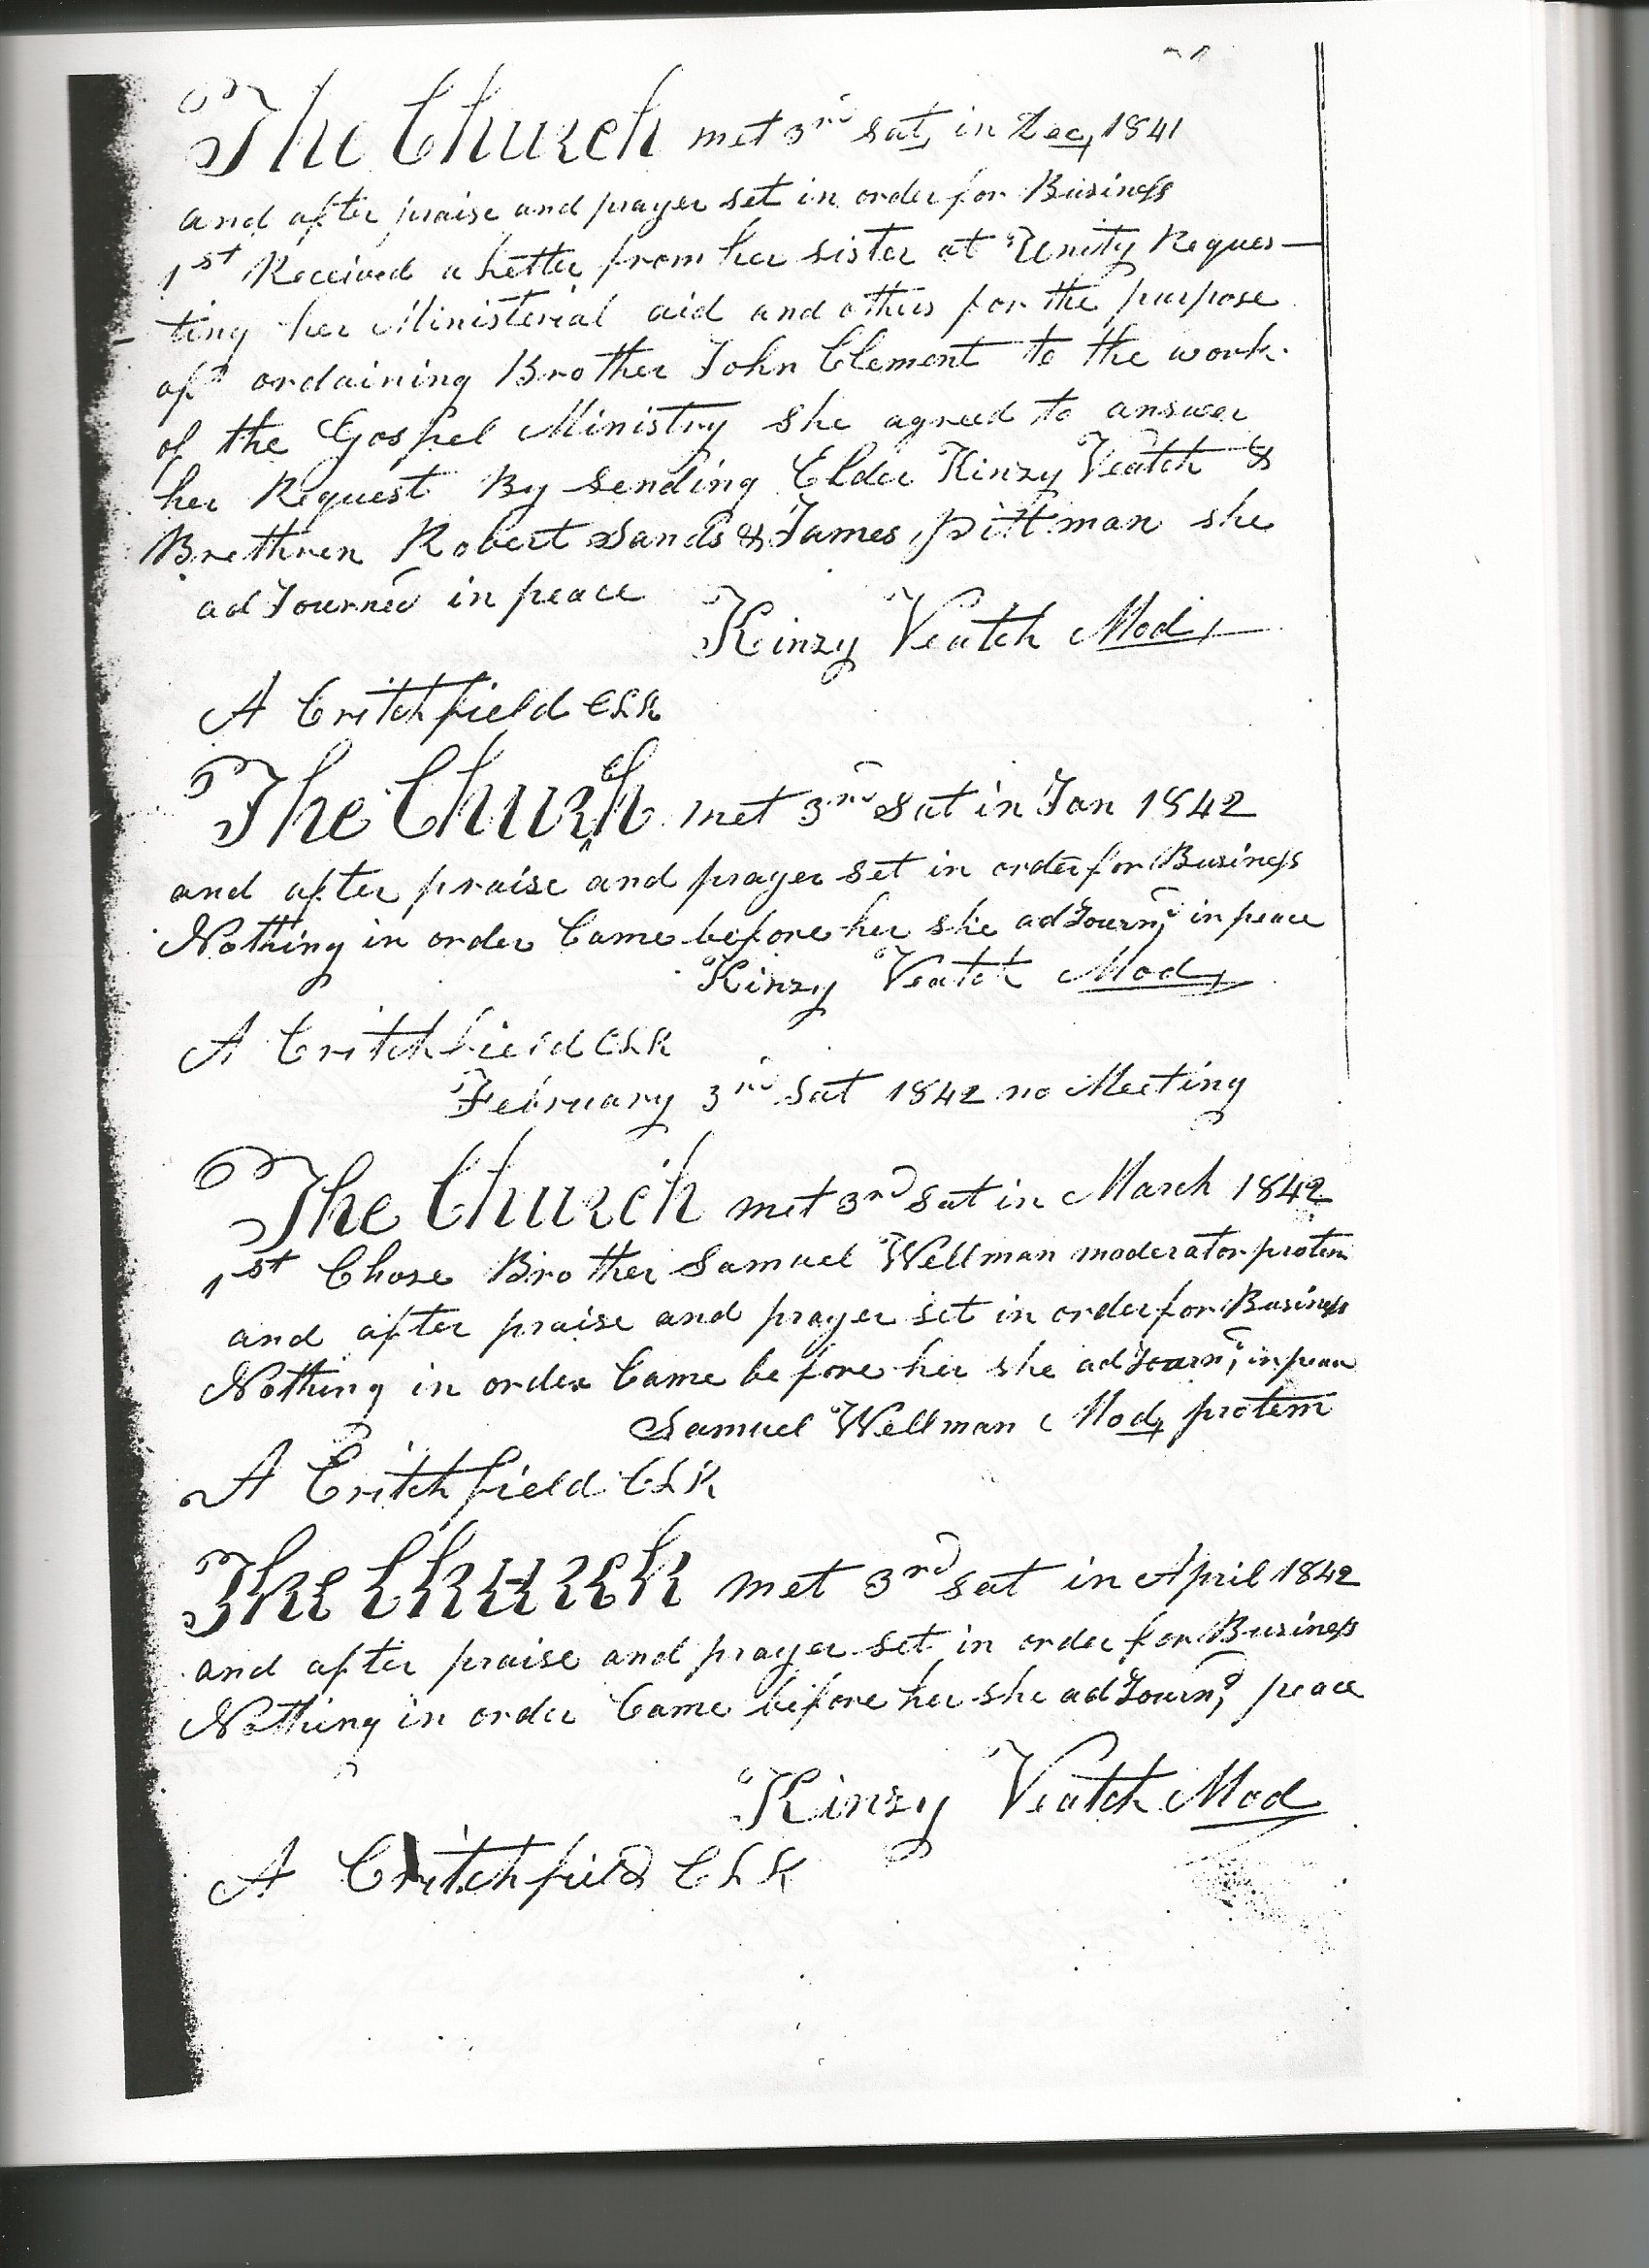 The Church met 3rd Sat, in Dec, 1841
and after praise and prayer set in order for Business
1st Received a Letter from her sister at Unity Reques-
-ting her Ministerial aid and others for the purpose
of ordaining Brother John Clement to the work
of the Gospel Ministry she agreed to answer
her Request By sending Elder Kinzy Veatch &
Brethren Robert Sands & James Pittman she
adJourned in peace
Kinzy Veatch Mod,
A Critchfield CLK
The Church met 3rd Sat in Jan 1842
and after praise and prayer set in order for Business
Nothing in order Came before her she adJournd, in peace
Kinzy Veatch Mod,
A Critchfield CLK
February 3rd Sat 1842 no Meeting
The Church met 3rd Sat in March 1842
1st Chose Brother Samuel Wellman moderator protem
and after praise and prayer set in order for Business
Nothing in order Came before her she adJournd, in peace
Samuel Wellman Mod, protem
A Critchfield CLK
The Church met 3rd Sat in April 1842
and after praise and prayer set in order for Business
Nothing in order Came before her she adJournd, peace
Kinzy Veatch Mod
A Critchfield CLK